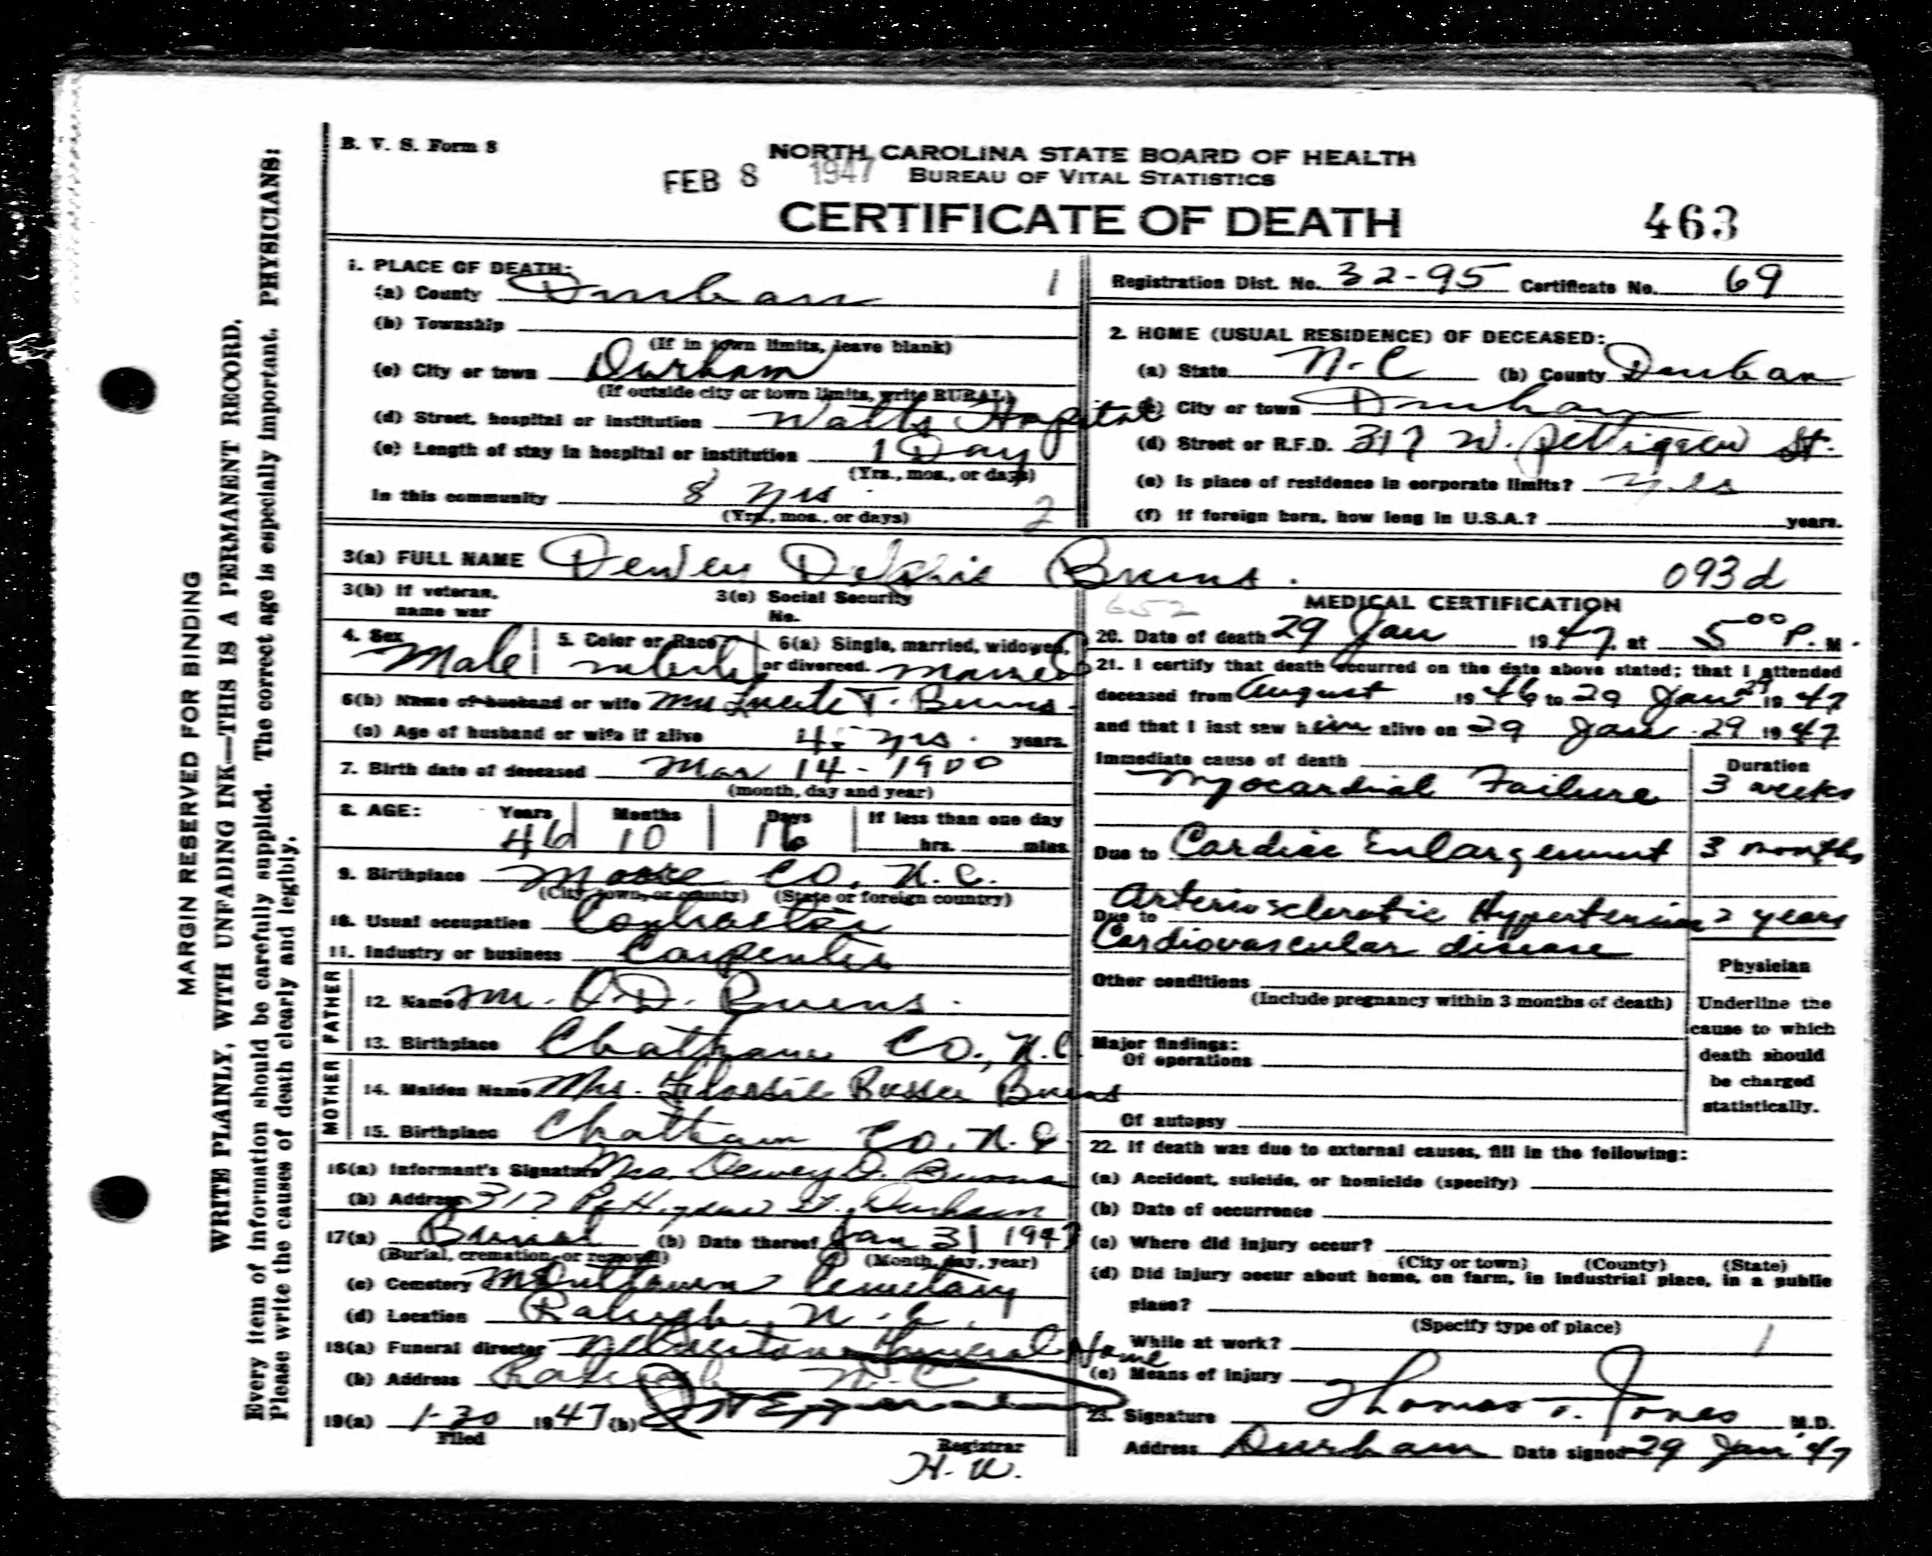 B. V. S. Form 8
NORTH CAROLINA STATE BOARD OF HEALTH
FEB 8 1947 BUREAU OF VITAL STATISTICS
CERTIFICATE OF DEATH 463
MARGIN RESERVED FOR BINDING
WRITE PLAINLY, WITH UNFADING INK—THIS IS A PERMANENT RECORD.
Every item of information should be carefully supplied. The correct age is especially important. PHYSICIANS:
Please write the causes of death clearly and legibly.
1. PLACE OF DEATH:
(a) County Durham 1
(b) Township
(If in town limits, leave blank)
(c) City or town Durham
(If outside city or town limits, write RURAL)
(d) Street, hospital or institution Watts Hospital
(e) Length of stay in hospital or institution 1 Day
(Yrs., mos., or days)
In this community 8 yrs.
(Yrs., mos., or days) 2
Registration Dist. No. 32-95 Certificate No. 69
2. HOME (USUAL RESIDENCE) OF DECEASED:
(a) State N. C (b) County Durham
(c) City or town Durham
(d) Street or R.F.D. 317 W. Pettigrew St.
(e) Is place of residence in corporate limits? yes
(f) If foreign born, how long in U.S.A.? years.
3(a) FULL NAME Dewey Burns. 093d
3(b) If veteran, name war
3(c) Social Security No.
4. Sex Male
5. Color or Race White
6(a) Single, married, widowed, or divorced. Married
6(b) Name of husband or wife Mrs T. Burns.
(c) Age of husband or wife if alive yrs. years.
7. Birth date of deceased Mar 14 - 1900
(month, day and year)
8. AGE: Years Months Days If less than one day
46 10 16 hrs. mins.
9. Birthplace Moore Co, N.C.
(City, town, or county) (State or foreign country)
10. Usual occupation Contractor
11. Industry or business Carpenter
FATHER
12. Name Mr. O.D. Burns.
13. Birthplace Chatham Co., N.C.
MOTHER
14. Maiden Name Mrs. Burns
15. Birthplace Chatham Co. N.C
16(a) Informant's Signature Mrs. Dewey D. Burns
(b) Address 317 Pettigrew St. Durham
17(a) Burial (b) Date thereof Jan 31 1947
(Burial, cremation, or removal) (Month, day, year)
(c) Cemetery Cemetary
(d) Location Raleigh, N. C.
18(a) Funeral director Funeral Home
(b) Address Raleigh N. C
19(a) 1-30 1947 (b)
Filed Registrar
H. W.
652 MEDICAL CERTIFICATION
20. Date of death 29 Jan 1947, at 5 00 P. M.
21. I certify that death occurred on the date above stated; that I attended
deceased from August 1946 to 29 Jan 29 1947
and that I last saw him alive on 29 Jan. 29 1947
Immediate cause of death Duration
Myocardial Failure 3 weeks
Due to Cardiac Enlargement 3 months
Due to Arteriosclerotic Hypertension 2 years
Cardiovascular disease
Other conditions
(Include pregnancy within 3 months of death)
Major findings:
Of operations
Of autopsy
Physician
Underline the
cause to which
death should
be charged
statistically.
22. If death was due to external causes, fill in the following:
(a) Accident, suicide, or homicide (specify)
(b) Date of occurrence
(c) Where did injury occur?
(City or town) (County) (State)
(d) Did injury occur about home, on farm, in industrial place, in a public
place?
(Specify type of place)
While at work? 1
(e) Means of Injury
23. Signature Thomas T. Jones M.D.
Address Durham Date signed 29 Jan '47